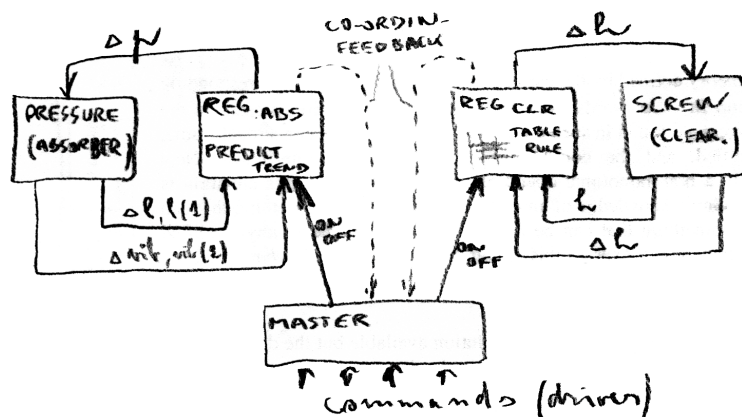 CO-ORDIN-
FEEDBACK
Δh
PRESSURE
(ABSORBER)
REG. ABS
PREDICT
TREND
REG CLR
TABLE
RULE
SCREW
(CLEAR.)
Δl, l(1)
h
Δh
ON
OFF
ON
OFF
MASTER
commands (driver)